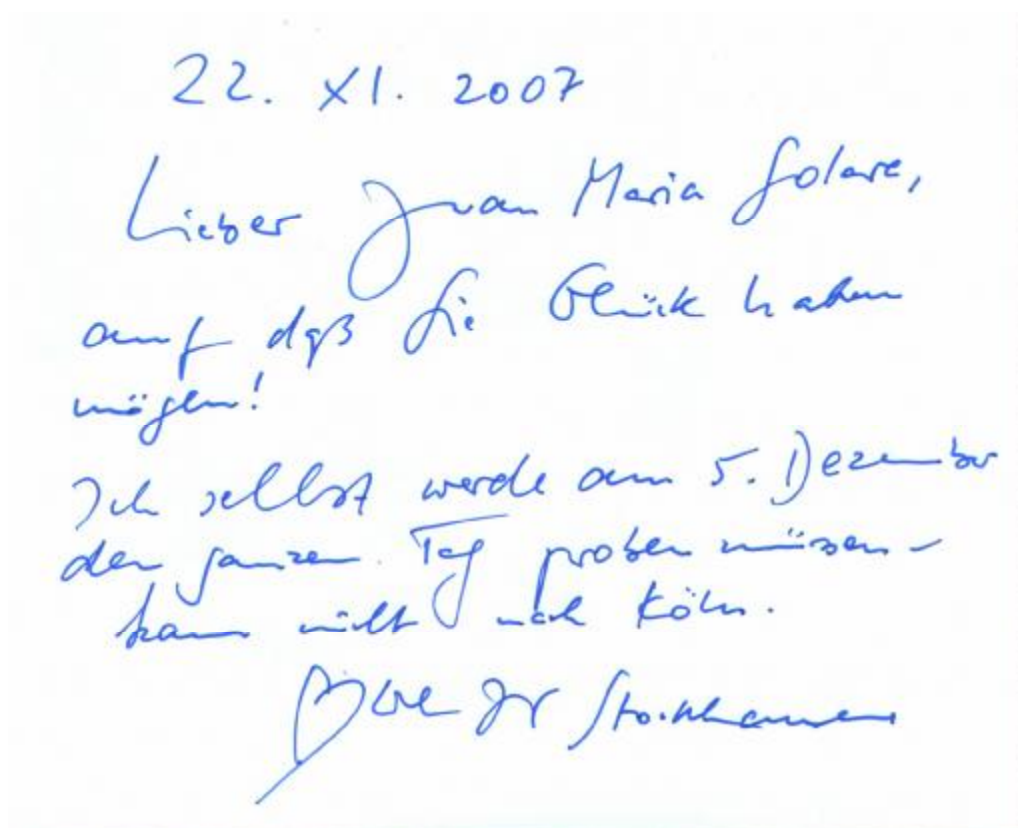 22. XI. 2007
Lieber Juan Maria Solare,
auf daß Sie Glück haben
mögen!
Ich selbst werde am 5. Dezember
den ganzen Tag proben müssen –
kann nicht nach Köln.
Ihr Stockhausen